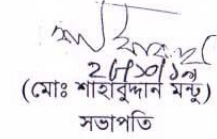 ২৮/১০/১৯
(মোঃ শাহাবুদ্দান মন্টু)
সভাপতি